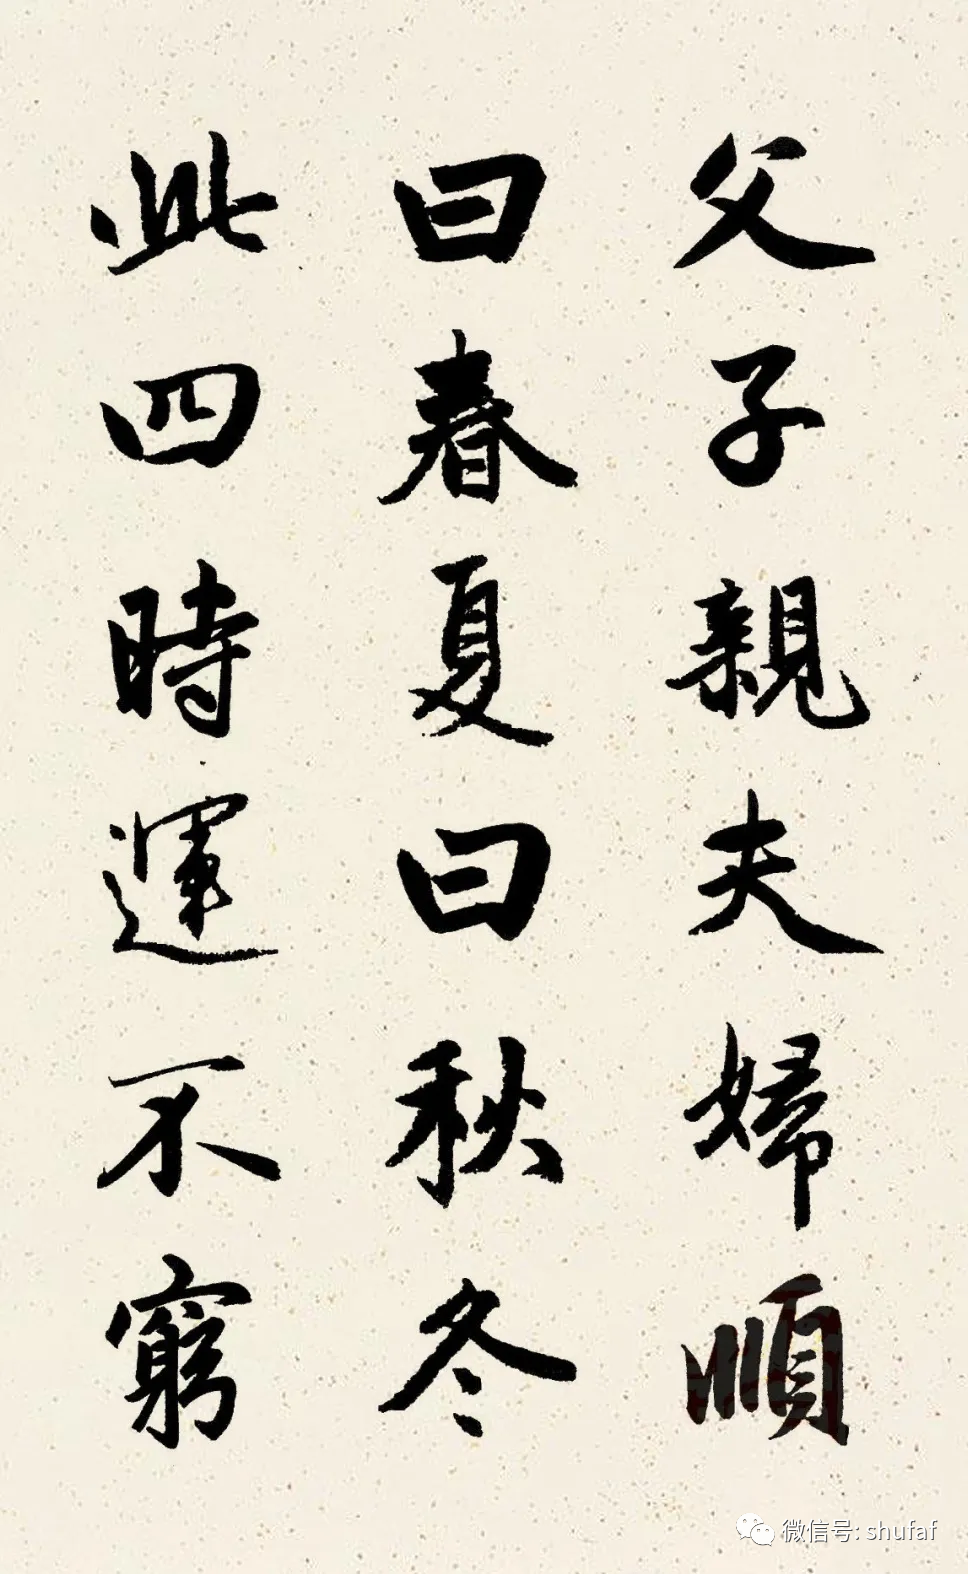 父子親夫婦順
曰春夏曰秋冬
此四時運不窮
微信号: shufaf